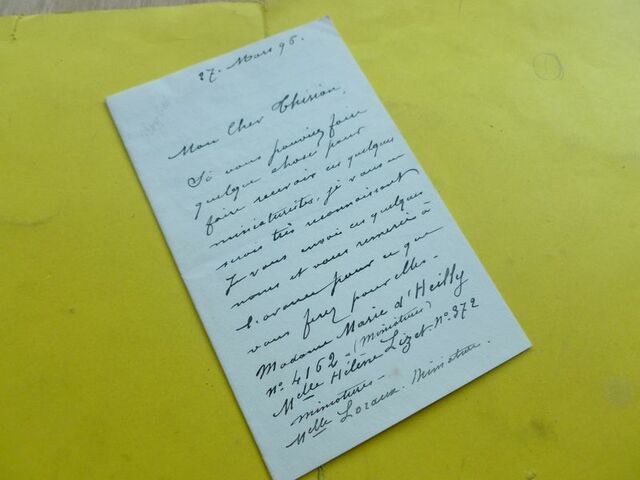 27. Mars 96.
Mon Cher Thirion,
Si vous pouviez faire
quelque chose pour
faire recevoir ces quelques
miniaturistes, je vous en
serais très reconnaissant
Je vous envoie ces quelques
noms et vous remercie à
l'avance pour ce que
vous ferez pour elles.
Madame Marie d'Heilly
n° 4162 - (Miniatures)
Melle Hélène Lizet. N° 372
miniatures -
Melle Loraux. Miniature.